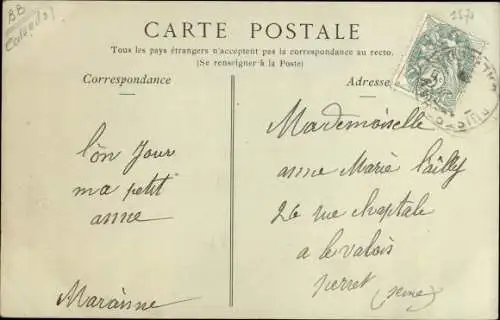 BB
CARTE POSTALE
Tous les pays étrangers n'acceptent pas la correspondance au recto.
(Se renseigner à la Poste)
Correspondance
Adresse
bôn Jour
ma petit
anne
Mademoiselle
anne Marie
26 rue chaptale
a levalois
perret (seine)